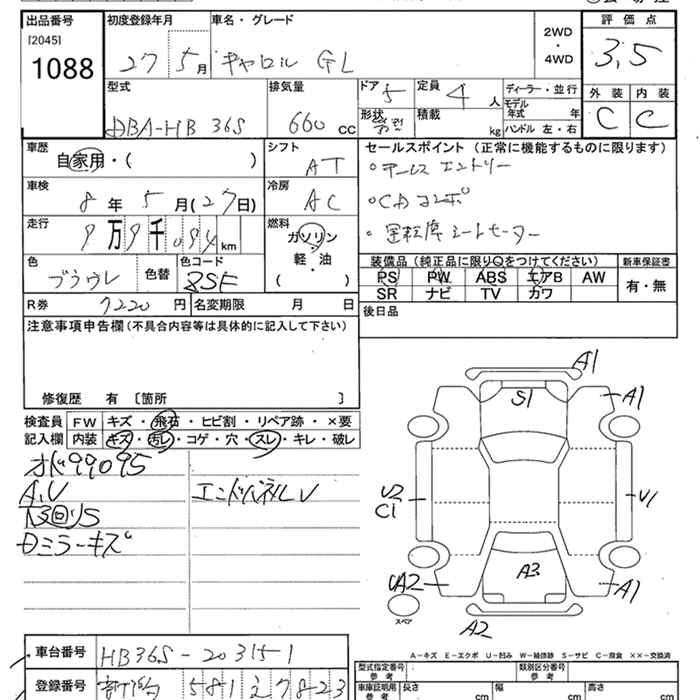 出品番号
[2045]
1088
初度登録年月
27 5月
車名・グレード
キャロル GL
2WD
・
4WD
評価点
3,5
外装 内装
C C
型式
DBA-HB36S
排気量
660 CC
ドア 5
形状
定員 4 人
積載 kg
ディーラー・並行
モデル年式 年
ハンドル 左・右
車歴
自家用・( )
シフト
AT
セールスポイント (正常に機能するものに限ります)
CDコンポ
運転席シートヒーター
車検
8年 5月(27日)
冷房
AC
走行
9万9千094km
燃料
ガソリン
・
軽・油
( )
色
色替
色コード
ZSF
装備品 (純正品に限り○をつけてください)
新車保証書
PS PW ABS エアB AW
SR ナビ TV カワ
有・無
R券 7220円
名変期限 月 日
後日品
注意事項申告欄(不具合内容等は具体的に記入して下さい)
修復歴 有 〔箇所 〕
検査員記入欄
FW キズ・飛石・ヒビ割・リペア跡・×要
内装 キズ・汚レ・コゲ・穴・スレ・キレ・破レ
オド99095
A,U
エンドパネルU
下回りS
日ミラーキズ
A1
S1
A1
U2
C1
U1
UA2
A3
A1
A2
スペア
A-キズ E-エクボ U-凹み W-補修跡 S-サビ C-腐食 ××-交換済
車台番号 HB36S-203151
登録番号 581 え 7823
型式指定番号
参考
類別区分番号
参考
車庫証明用
参考
長さ cm
幅 cm
高さ cm